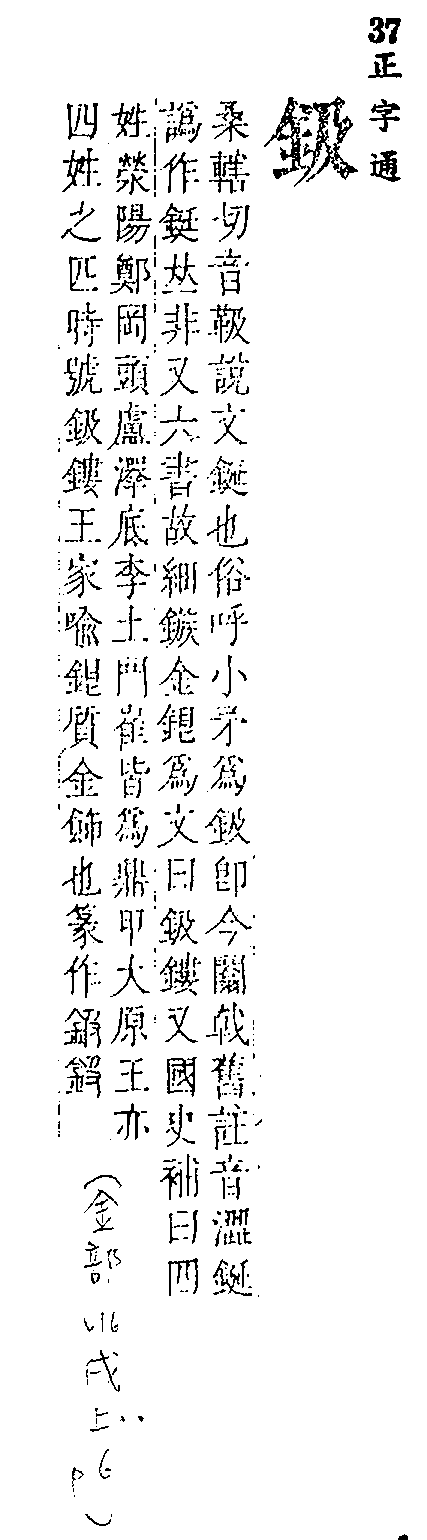 37正字通
鈒
桑轄切音靸說文鋋也俗呼小矛爲鈒卽今闟戟舊註音澀鋋
譌作鋌𠀤非又六書故細鏃金銀爲文曰鈒鏤又國史補曰四
姓滎陽鄭岡頭盧澤底李土門崔皆爲鼎甲大原王亦
四姓之匹時號鈒鏤王家喩銀質金飾也篆作
(金部
戌上
P6)